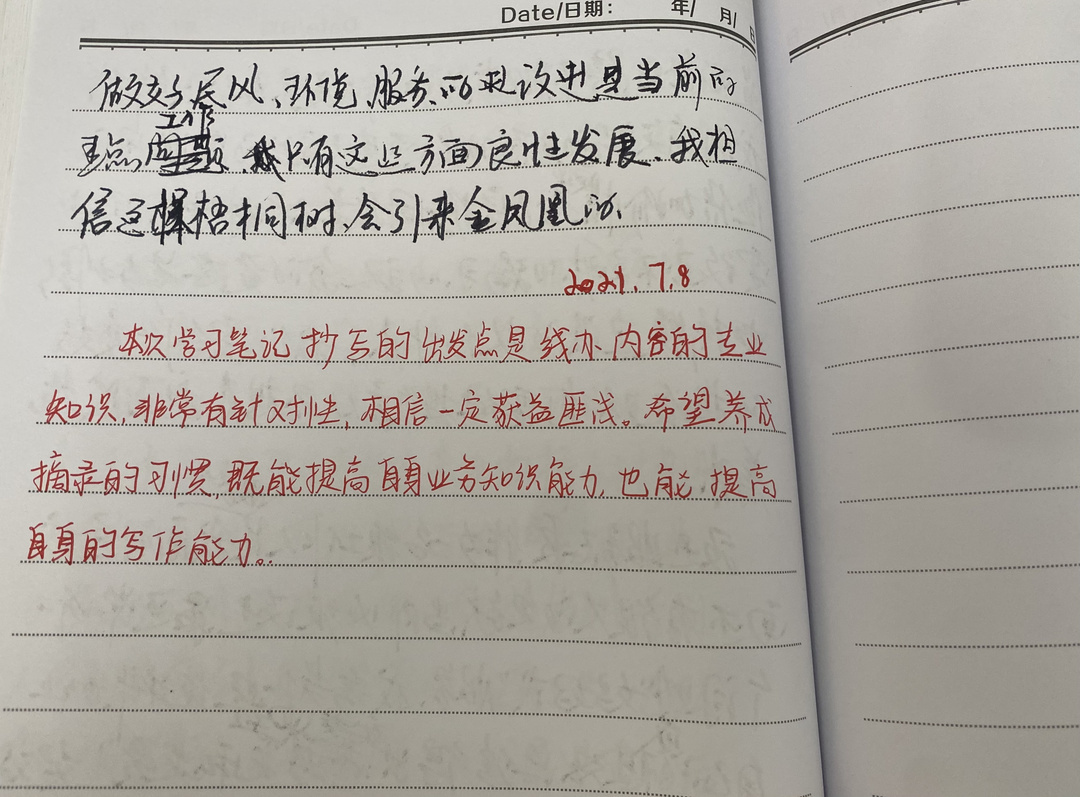 Date/日期: 年/ 月/ 日
做好民风、环境、服务的改进是当前的
工作
重点，只有这些方面良性发展、我相
信这棵梧桐树、会引来金凤凰的、
2021.7.8
本次学习笔记抄写的出发点是线办内容的专业
知识，非常有针对性，相信一定获益匪浅。希望养成
摘录的习惯，既能提高自身业务知识能力，也能提高
自身的写作能力。